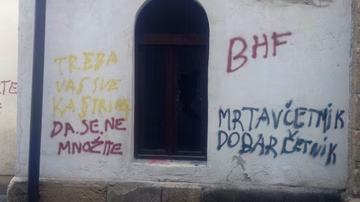 TREBA
VAS SVE
KASTRIRAT
DA SE NE
MNOŽITE
BHF
MRTAV ČETNIK
DOBAR ČETNIK